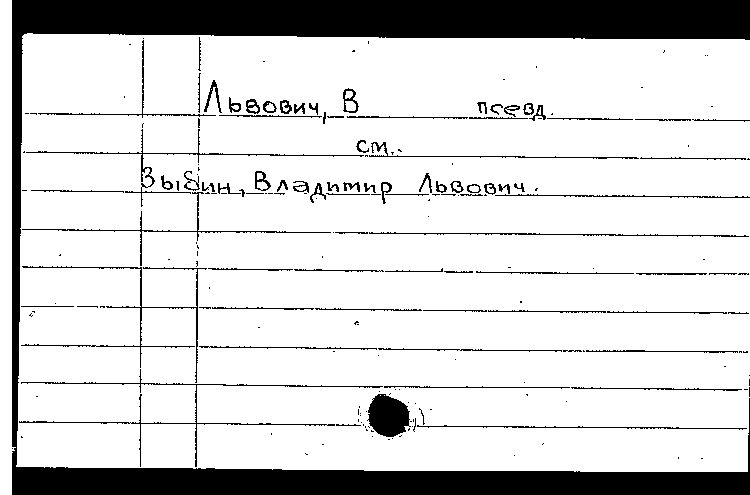 Львович, В псевд.
см.
Зыбин, Владимир Львович.